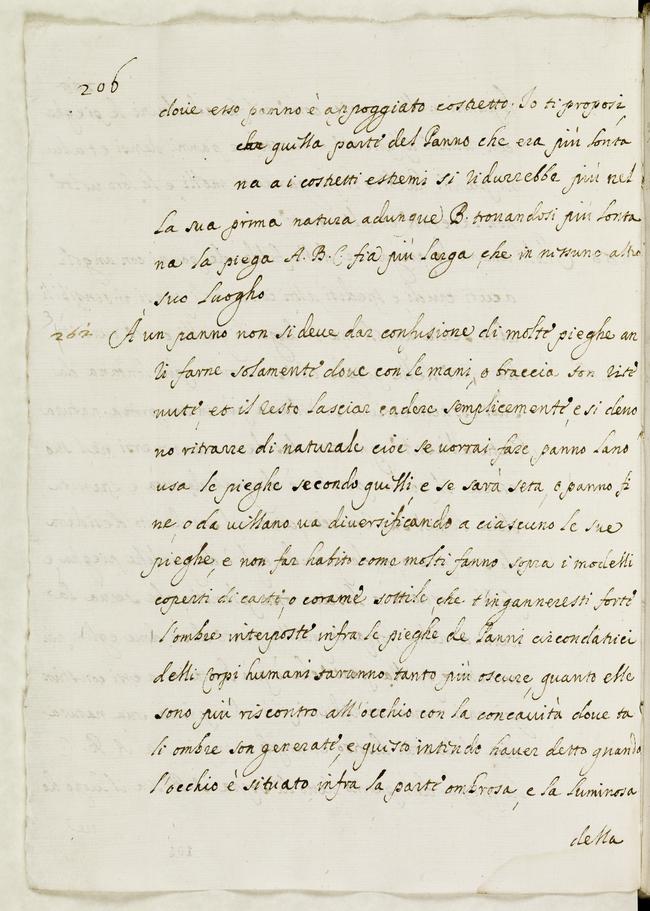 206
dove esso panno è appoggiato costretto. Io ti proposi
che quella parte del Panno che era più lonta
na a i costretti estremi si ridurrebbe più nel
la sua prima natura adunque B. trovandosi più lonta
na la piega A. B. C. fia più larga che in nissuno altro
suo luogho
262 A un panno non si deve dar confusione di molte pieghe an
zi farne solamente dove con le mani, o braccia son rite
nute, et il resto lasciar cadere semplicemente, e si devo
no ritrarre di naturale cioè se vorrai fare panno lano
usa le pieghe secondo quelli, e se sarà seta, o panno fi
ne, o da villano va diversificando a ciascuno le sue
pieghe, e non far habito come molti fanno sopra i modelli
coperti di carte, o corame sottile, che t'inganneresti forte
l'ombre interposte infra le pieghe de Panni circondatrici
delli Corpi humani saranno tanto più oscure, quanto elle
sono più riscontro all'occhio con la concavità dove ta
li ombre son generate, e questo intendo haver detto quando
l'occhio è situato infra la parte ombrosa, e la luminosa
della